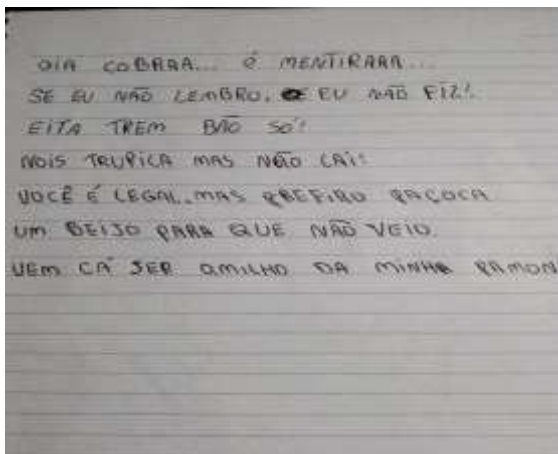 OIA COBRAA... É MENTIRAAA...
SE EU NÃO LEMBRO, EU NÃO FIZ!
EITA TREM BÃO SÔ!
NOIS TRUPICA MAS NÃO CAI!
VOCÊ É LEGAL, MAS PREFIRO PAÇOCA
UM BEIJO PARA QUE NÃO VEIO.
VEM CÁ SER O MILHO DA MINHA PAMON